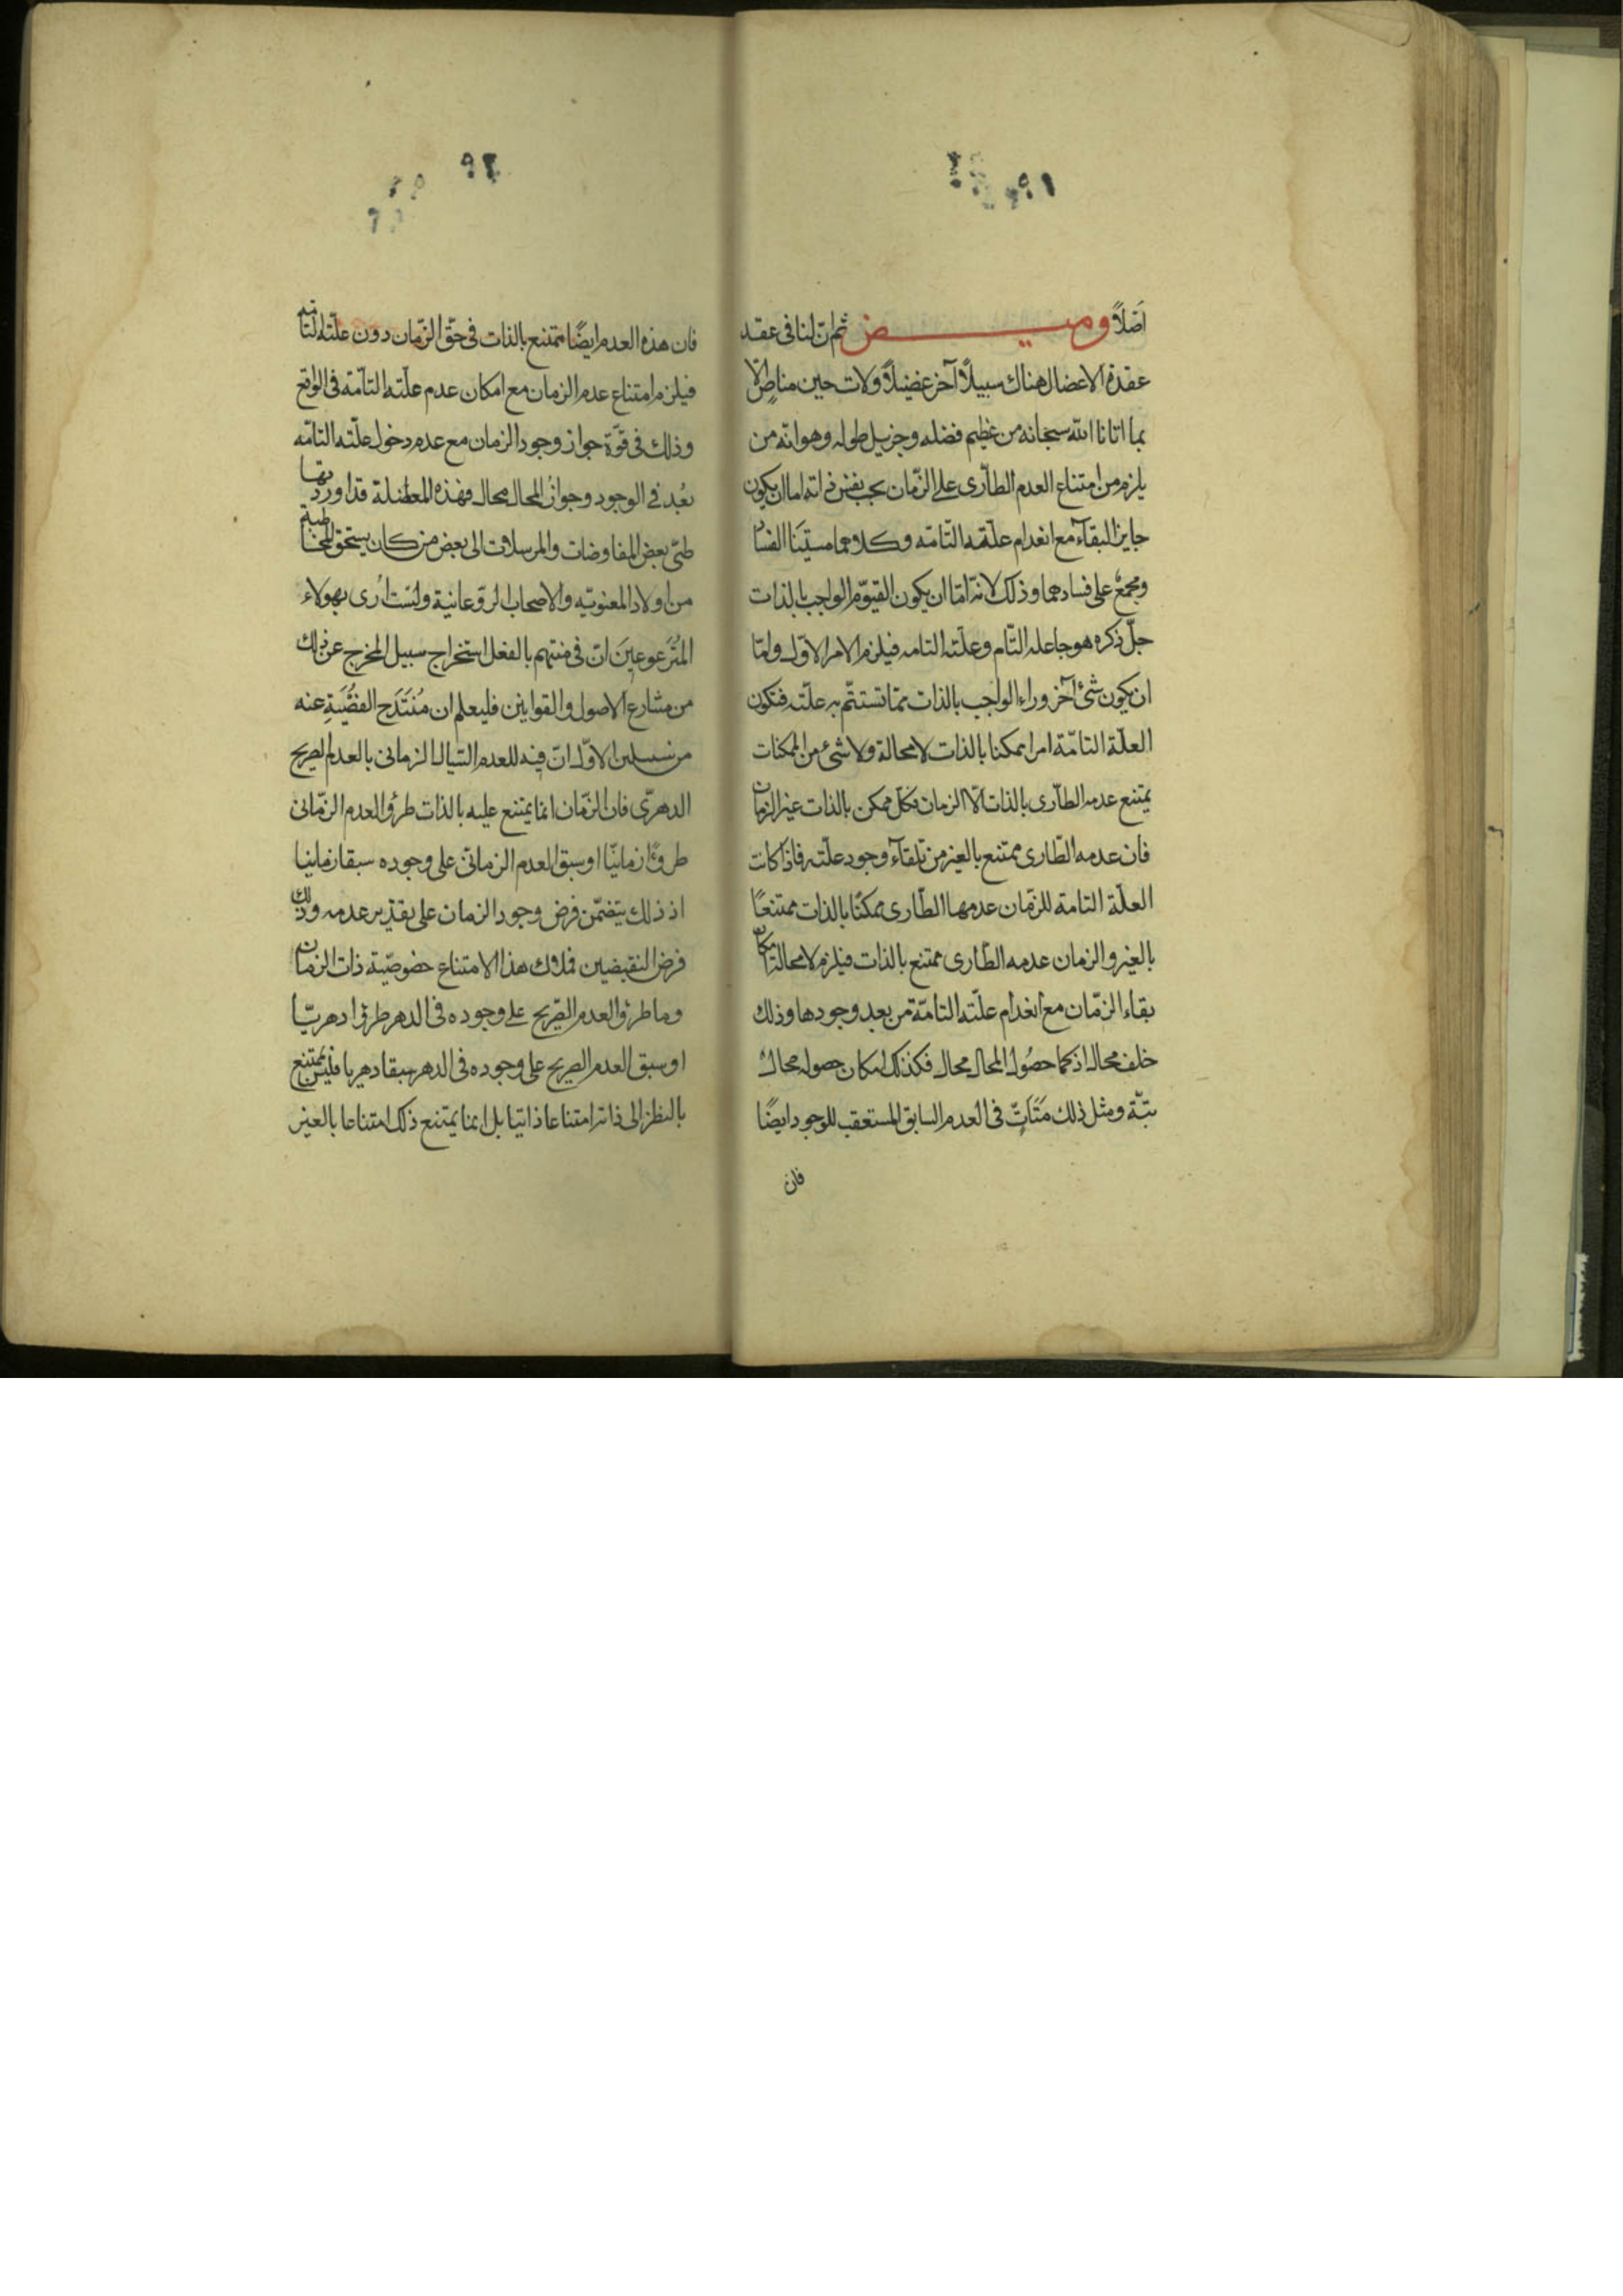 ٩١
اصلاً وميض ثم ان لنا فى عقد
عقدة الاعضال هناك سبيلاً آخر عضيلاً ولات حين مناص الّا
بما اتانا الله سبحانه من عظيم فضله وجزيل طوله وهو انه من
يلزم من امتناع العدم الطارى على الزمان بحسب نفس ذاته اما ان يكون
جايز البقاء مع انعدام علته التامه وكلاهما مستبينا الفساد
ومجمع على فسادهما وذلك لانه امّا ان يكون القيوم الواجب بالذات
جلّ ذكره هو جاعله التام وعلته التامه فيلزم الامر الاوّل وامّا
ان يكون شئ آخر وراء الواجب بالذات مما تستتم به علته فتكون
العلة التامّة امرا ممكنا بالذات لا محالة ولا شئ من الممكنات
يمتنع عدمه الطارى بالذات الّا الزمان فكل ممكن بالذات غير الزمان
فان عدمه الطارى ممتنع بالغير من تلقاء وجود علته فاذا كانت
العلّة التامة للزمان عدمها الطارى ممكنا بالذات ممتنعًا
بالغير والزمان عدمه الطارى ممتنع بالذات فيلزم لا محالة امكان
بقاء الزمّان مع انعدام علته التامّة من بعد وجودها وذلك
خلف محال اذ كما حصول المحال محال فكذلك امكان حصوله محال
بتّة ومثل ذلك متأتّ فى العدم السابق المستعقب للوجود ايضًا
فان
٩٢
فان هذه العدم ايضًا ممتنع بالذات فى حقّ الزمان دون علته التامه
فيلزم امتناع عدم الزمان مع امكان عدم علته التامّة فى الواقع
وذلك فى قوّة جواز وجود الزمان مع عدم دخول علته التامّه
بعُد فى الوجود وجواز المحال محال فهذه المعضلة قد اوردتها
طىّ بعض المفاوضات والمرسلات الى بعض من كان يستحق المخاطبة
من اولاد المعنويّه والاصحاب الروعانية ولست ارى بهولاء
المترعوعين ان فى منتهم بالفعل استخراج سبيل المخرج عن ذلك
من مشارع الاصول والقوانين فليعلم ان مُنتَدَح الفَصْيَةِ عنه
من سبيلين الاوّل ان فيه للعدم السّيال الزمانى بالعدم الصريح
الدهرىّ فان الزّمان انما يمتنع عليه بالذات طرؤ العدم الزّمانى
طروءًا زمانيّا او سبق العدم الزمانىّ على وجوده سبقا زمانيا
اذ ذلك يتضمّن فرض وجود الزمان على تقدير عدمه وذلك
فرض النقيضين فملاك هذا الامتناع خصوصيّة ذات الزمان
وما طرؤ العدم الصّريح على وجوده فى الدهر طرؤا دهريّا
او سبق العدم الصريح على وجوده فى الدهر سبقا دهريا فليس يمتنع
بالنظر الى ذاته امتناعا ذاتيا بل انما يمتنع ذلك امتناعا بالغير